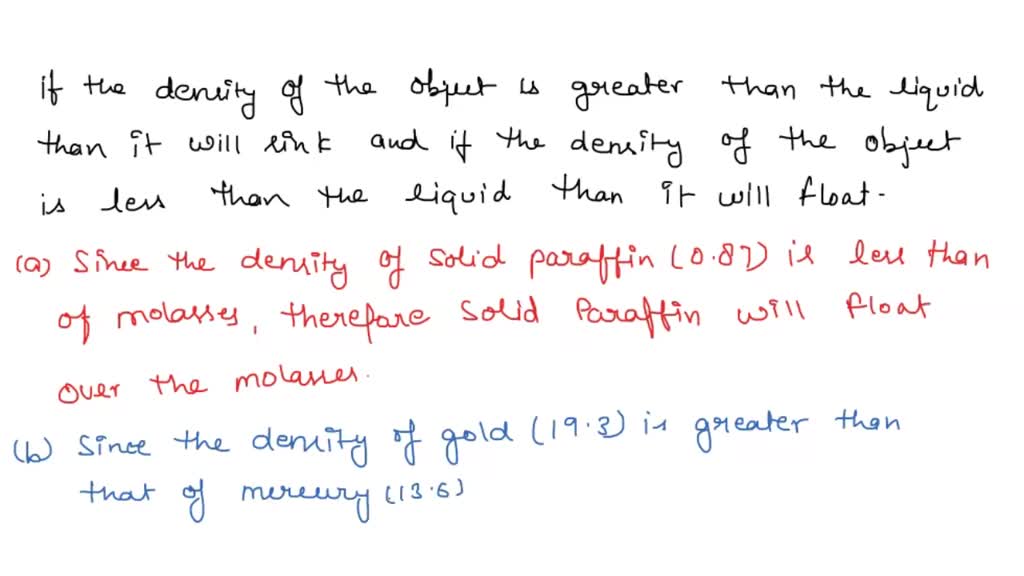 If the density of the object is greater than the liquid
than it will sink and if the density of the object
is less than the liquid than it will float.
(a) Since the density of solid paraffin (0.87) is less than
of molasses, therefore solid Paraffin will float
over the molasses.
(b) Since the density of gold (19.3) is greater than
that of mercury (13.6)